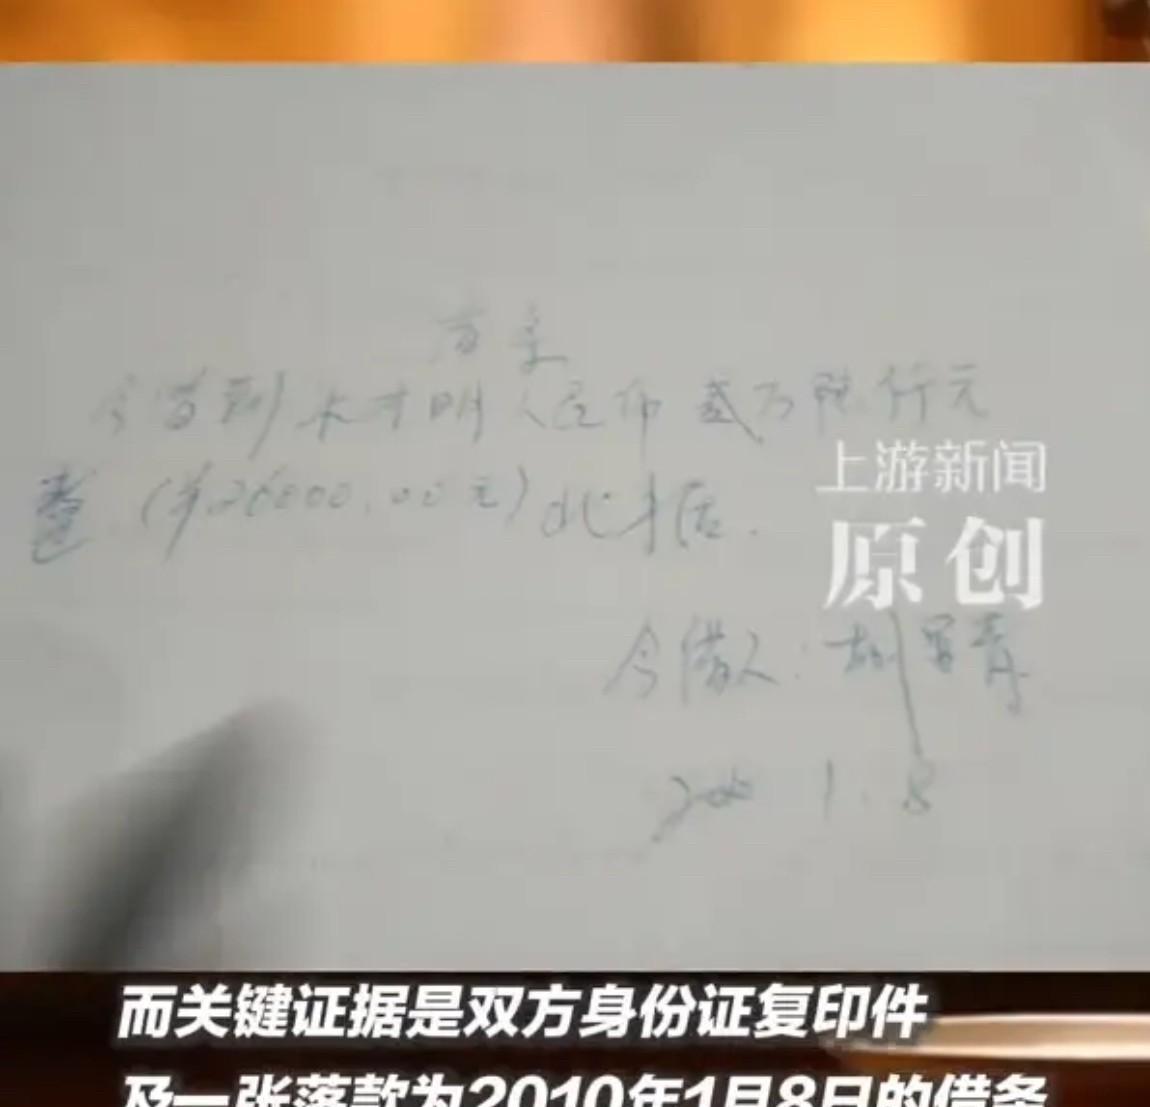 借条
今借到 人民币 贰万陆仟元
整.(¥26000.00元)此才居.
上游新闻
原创
今借人: 胡军青
1.8
而关键证据是双方身份证复印件
及一张落款为2010年1月8日的借条